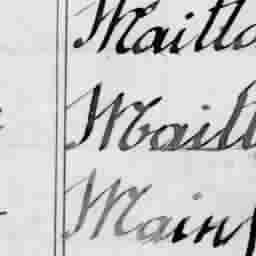 Maitla
Maill
Main